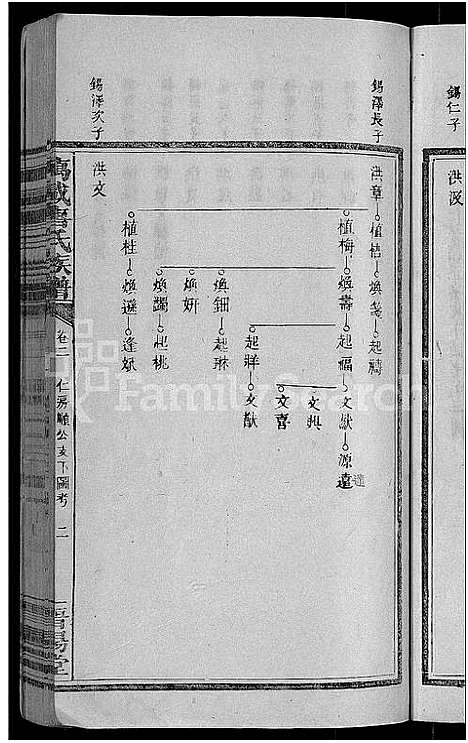 錫仁子
洪汲
錫澤長子
洪章
植梧
煥箋
起
植梅
煥壽
起福
文猷
源遠
遠
文典
文喜
起祥
文猷
煥鈿
起琳
煥妍
煥躅
起桃
植桂
煥遜
逢妣
錫澤次子
洪文
萬載唐氏族譜
卷二
仁房順公支下圖考
二
晉陽堂
FamilySearch